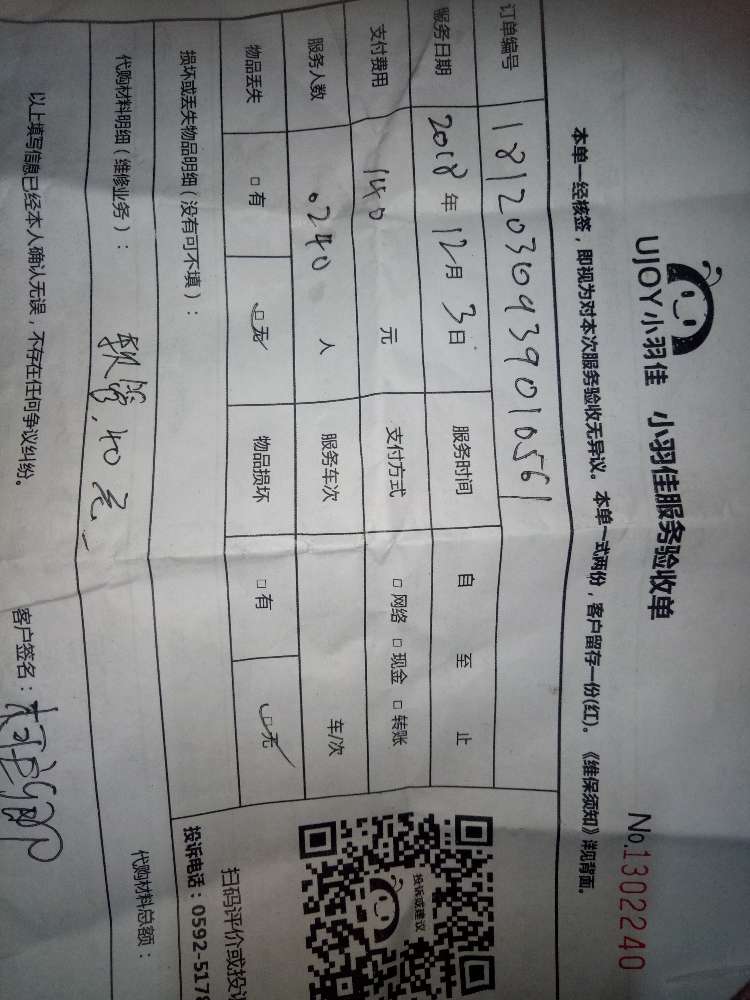 UJOY小羽佳 小羽佳服务验收单
No.1302240
本单一经核签，即视为对本次服务验收无异议。本单一式两份，客户留存一份(红)。《维保须知》详见背面。
订单编号 181203093901 0561
服务日期 2018年12月3日 服务时间 自 至 止
支付费用 140 元 支付方式 □网络 □现金 □转账
服务人数 .240 人 服务车次 车/次
物品丢失 □有 □无 物品损坏 □有 □无
损坏或丢失物品明细（没有可不填）：
代购材料明细（维修业务）： 软管，40元 代购材料总额：
以上填写信息已经本人确认无误，不存在任何争议纠纷。 客户签名：
投诉或建议
扫码评价或投诉
投诉电话：0592-5178